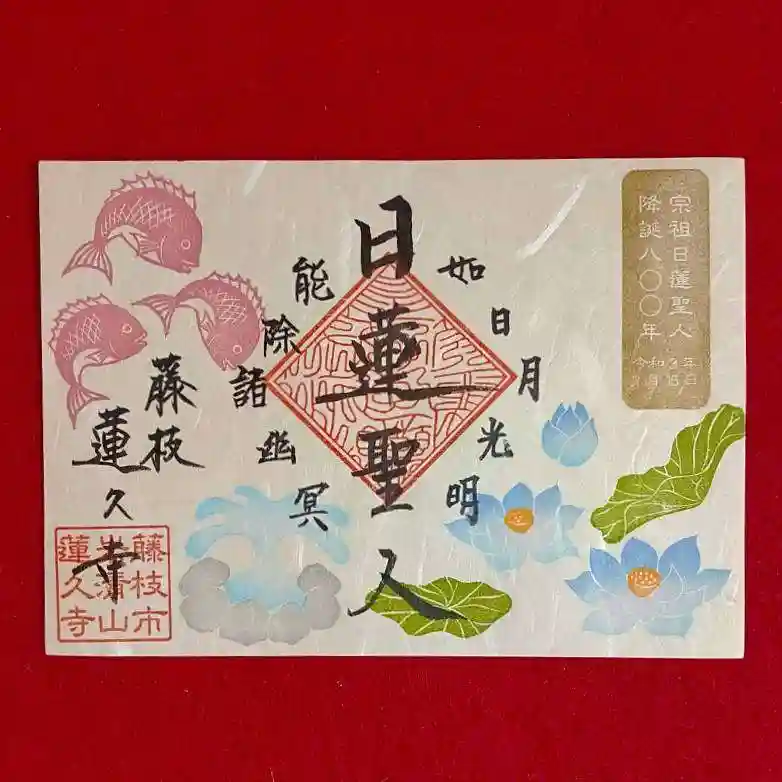 宗祖日蓮聖人
降誕八〇〇年
令和3年
2月16日
如日月光明
日蓮聖人
能除諸幽冥
藤枝
蓮久寺
藤枝市
光清山
蓮久寺